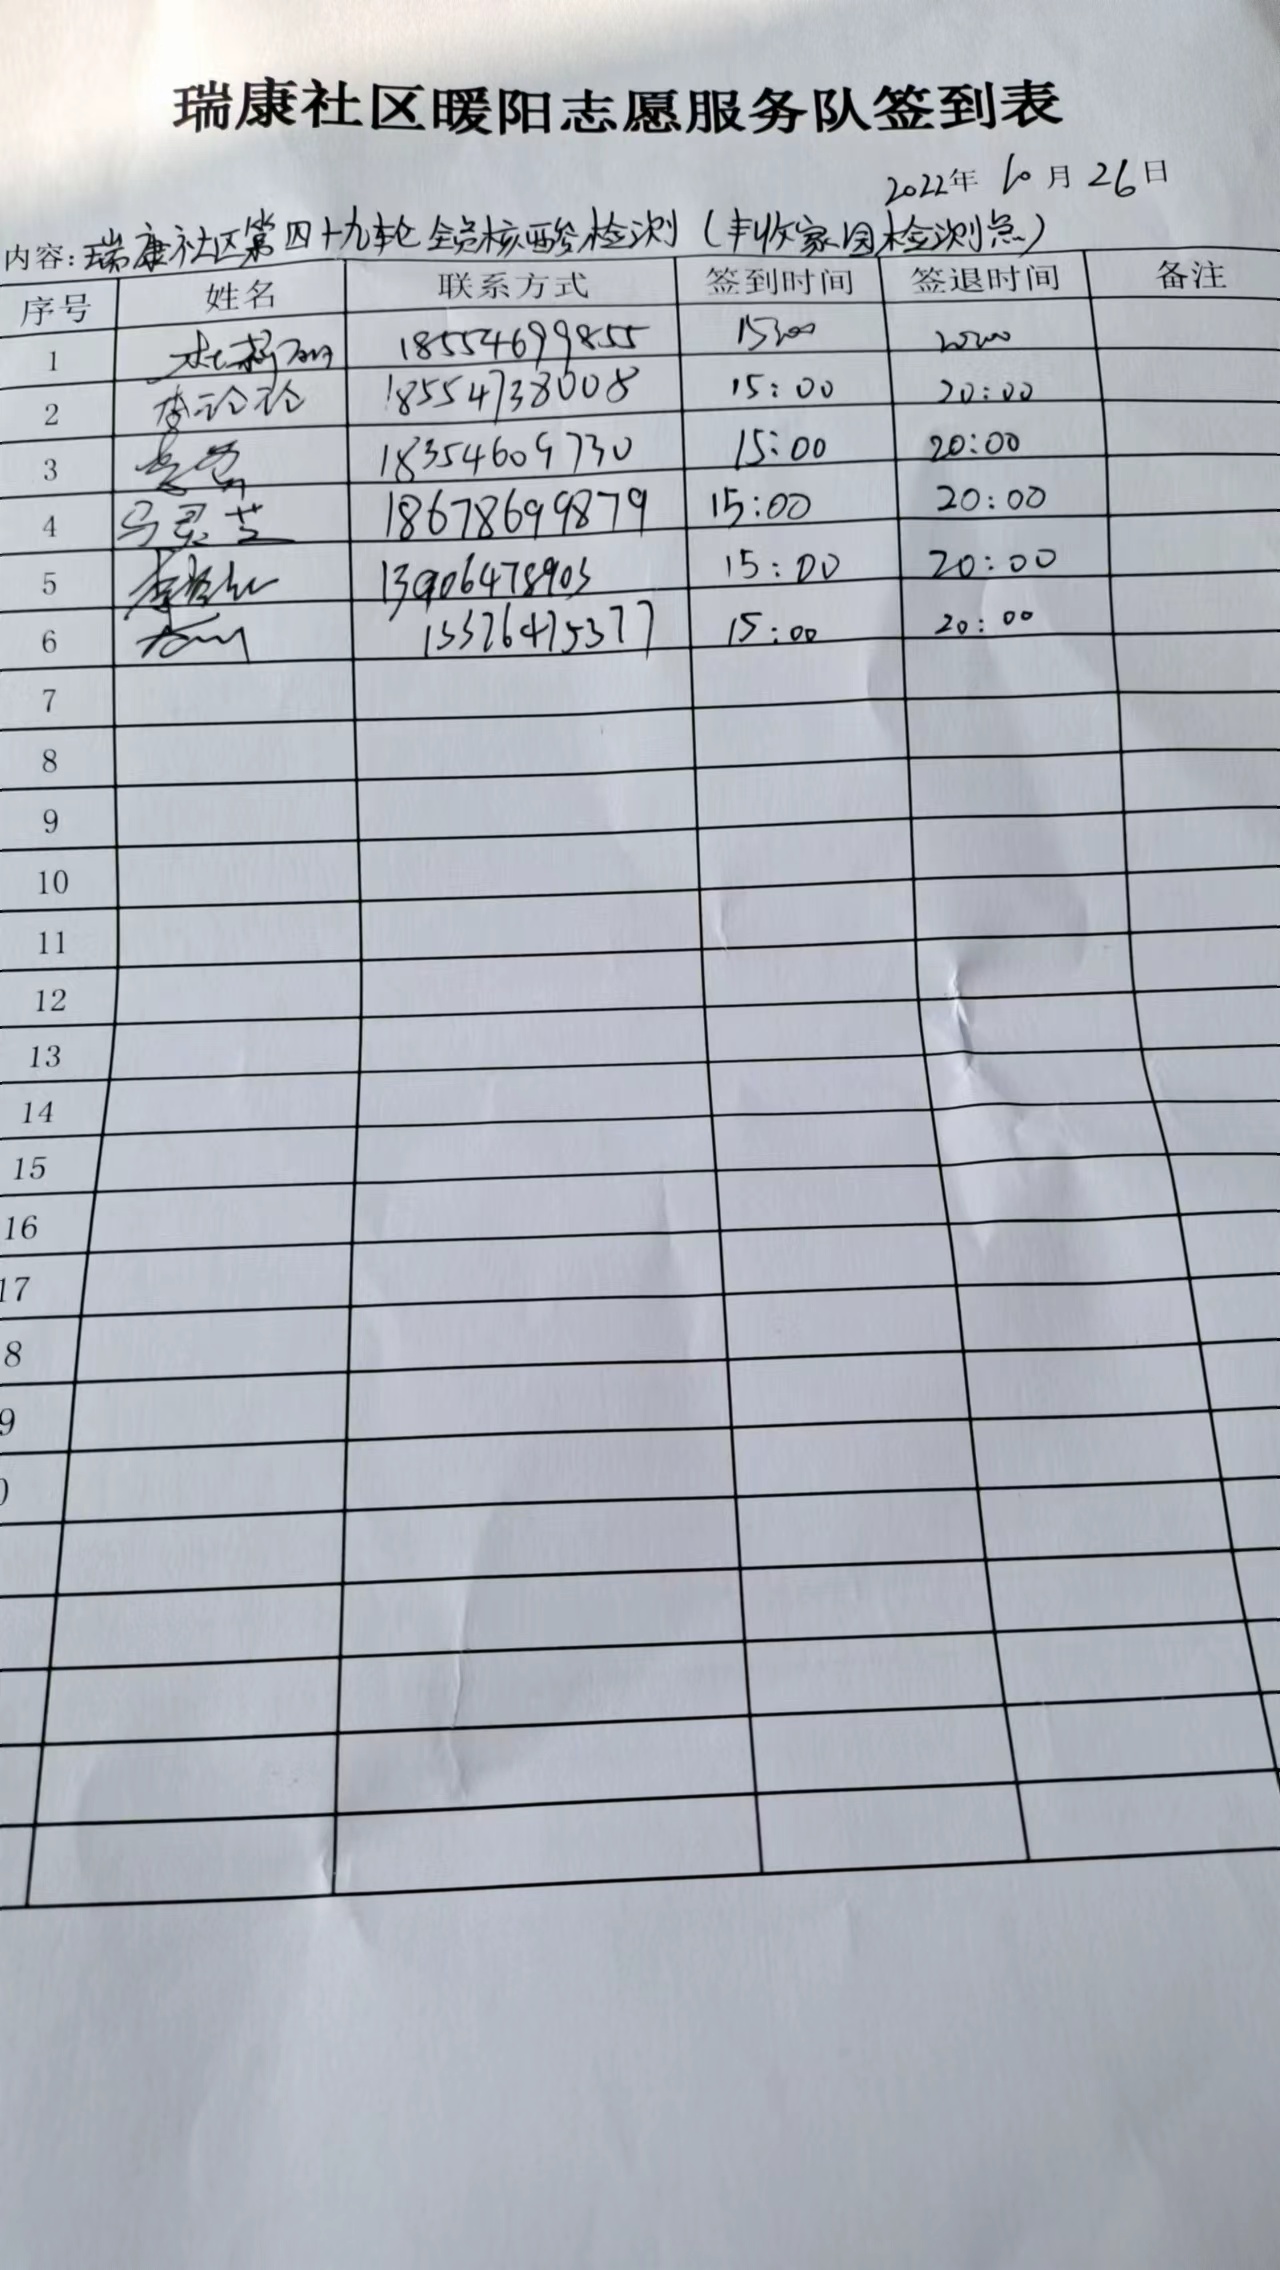 瑞康社区暖阳志愿服务队签到表
2022年 10月 26日
内容: 瑞康社区第四十九轮全员核酸检测（丰收家园检测点）
序号 姓名 联系方式 签到时间 签退时间 备注
1 18554699855 15:00 20:00
2 李论论 18554738008 15:00 20:00
3 18354609730 15:00 20:00
4 马灵芝 18678699879 15:00 20:00
5 13906478903 15:00 20:00
6 15:00 20:00
7
8
9
10
11
12
13
14
15
16
17
8
9
0